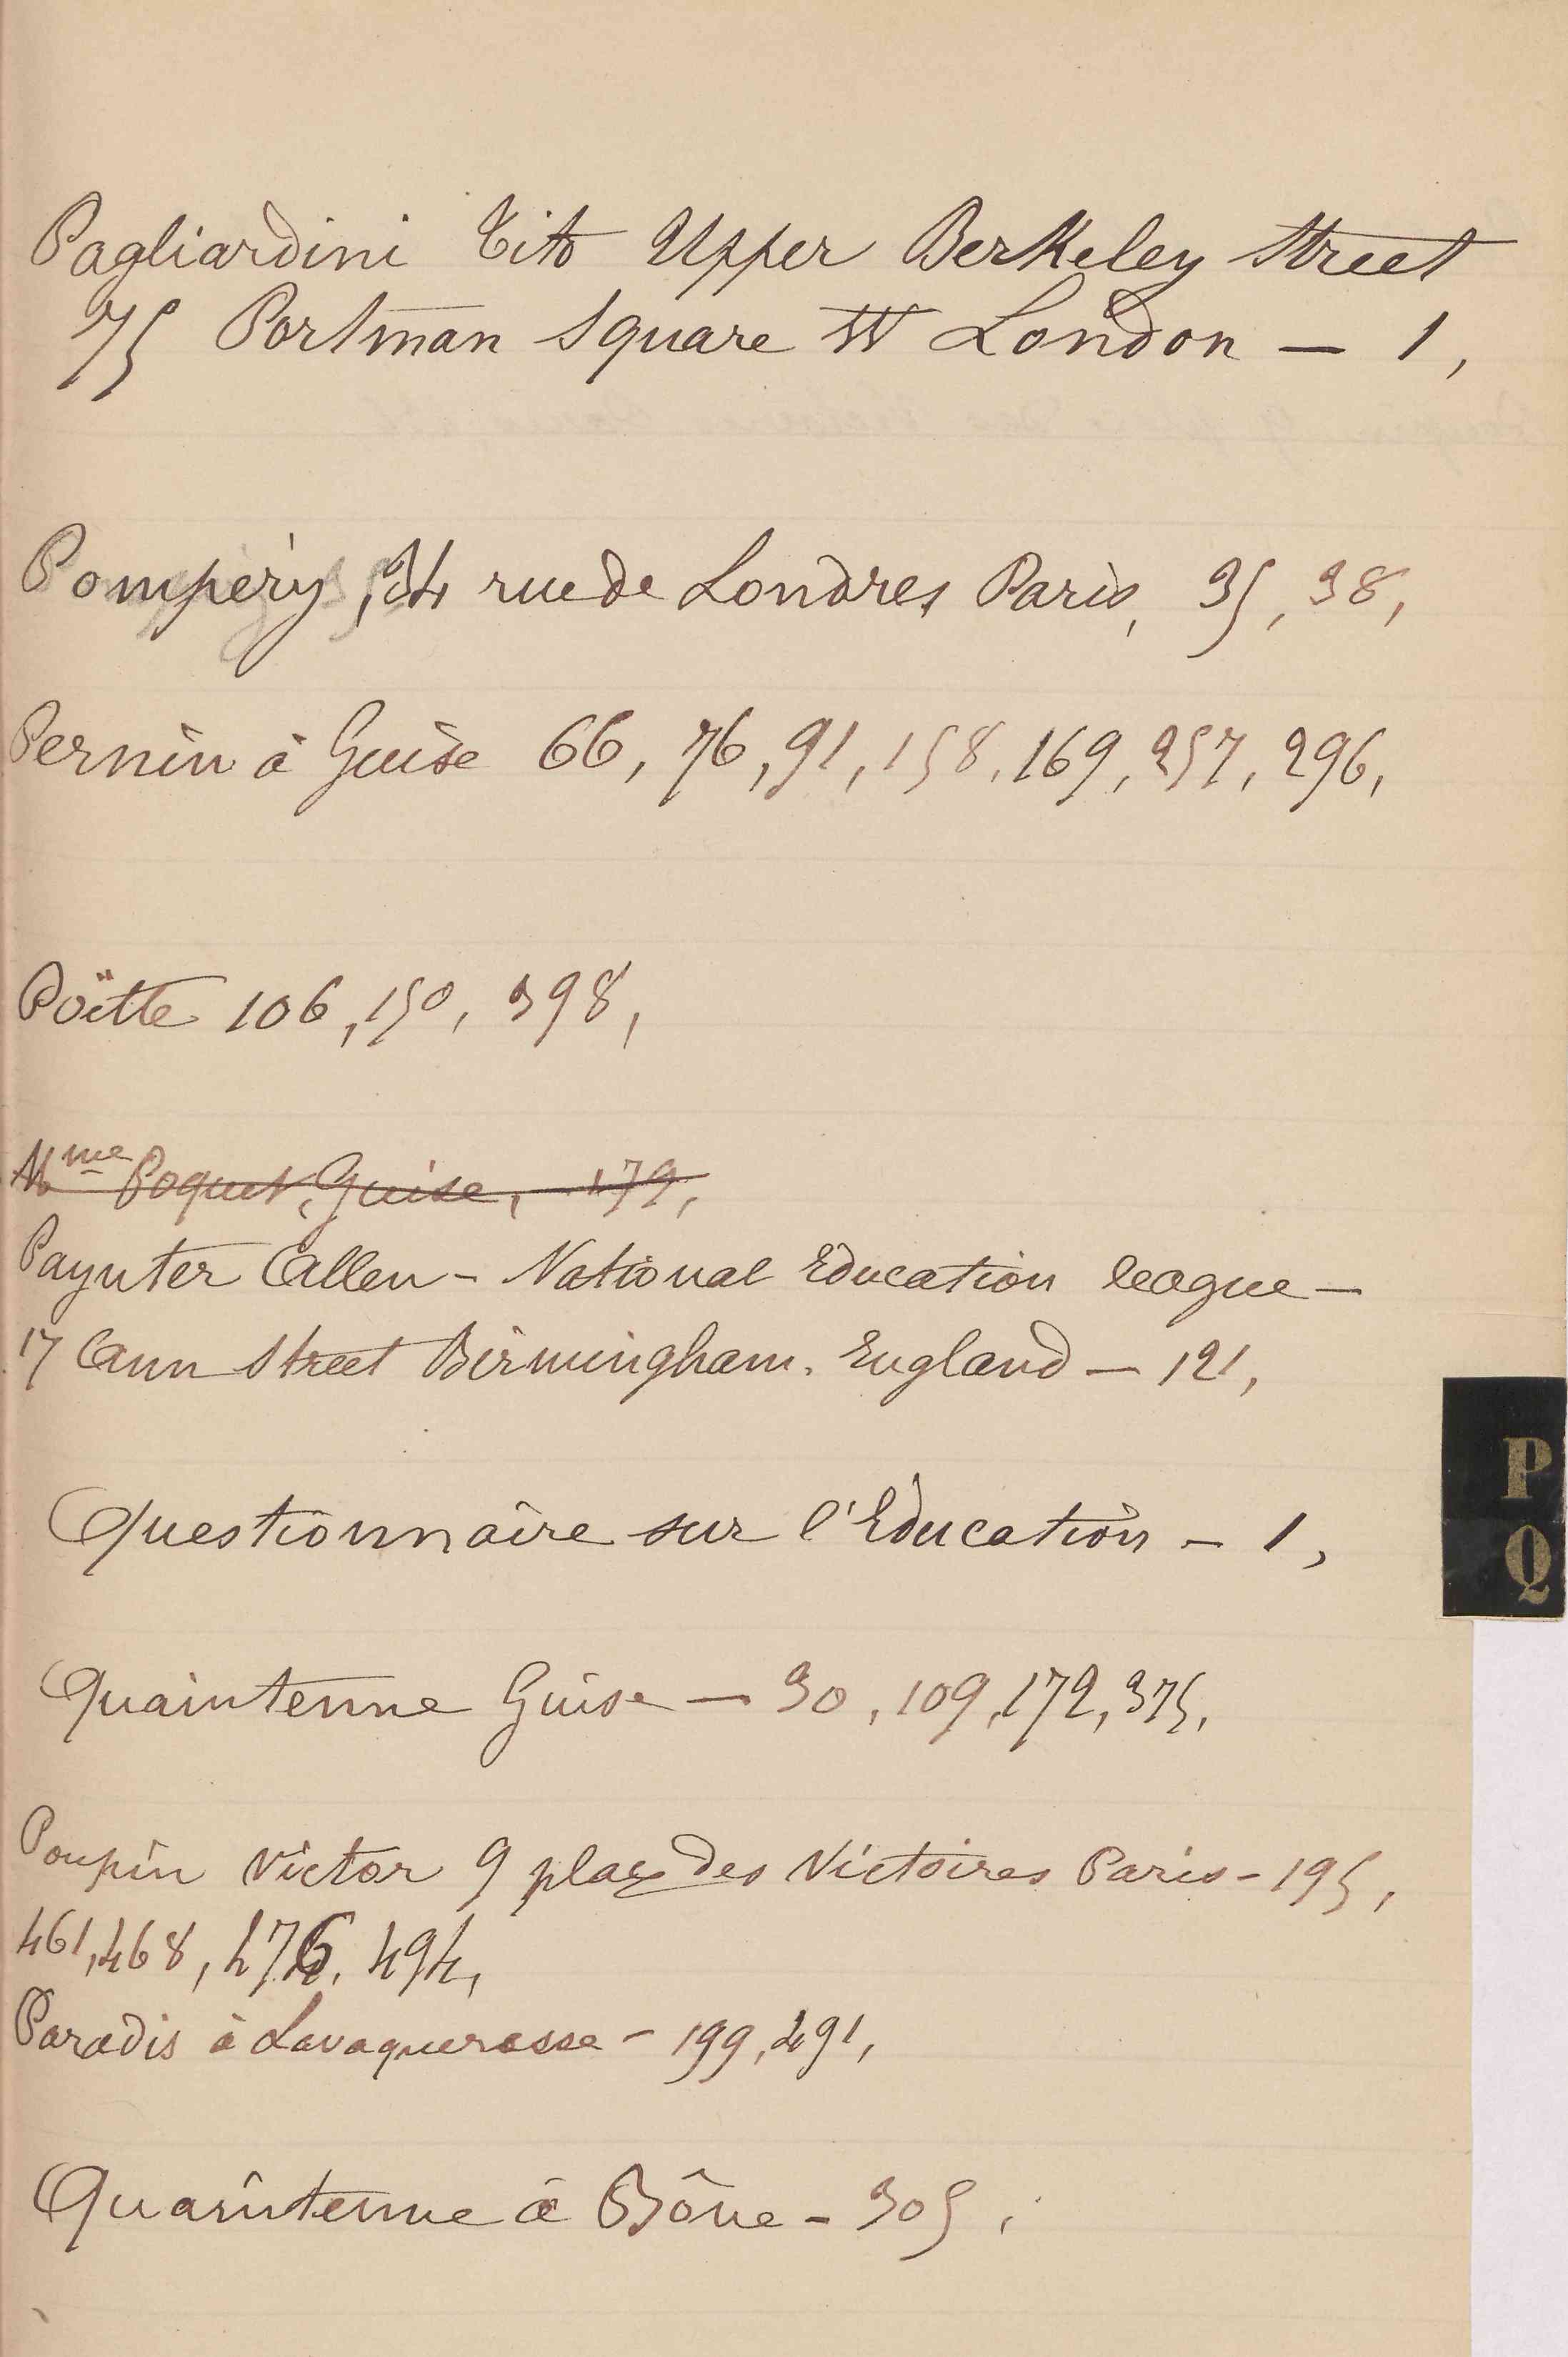 Pagliardini Tito Upper Berkeley Street
75 Portman Square W London — 1,
Pompéry, 34 rue de Londres Paris, 35, 38,
Pernin à Guise 66, 76, 91, 158, 169, 257, 296,
Poëtte 106, 150, 398,
Mme Poquet, Guise, 179,
Paynter Allen - National Education league —
17 Ann Street Birmingham. England — 121,
Questionnaire sur l'Education - 1,
Quaintenne Guise — 30, 109, 172, 375,
Poupin Victor 9 place des Victoires Paris - 195,
461, 468, 476, 494,
Paradis à Lavaqueresse - 199, 491,
Quaintenne à Bône - 305,
P
Q